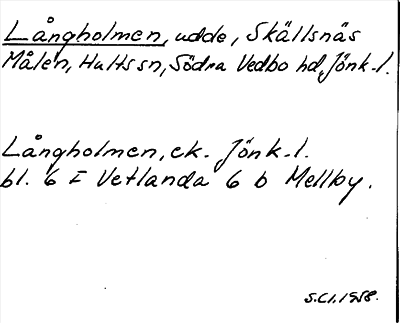 Långholmen, udde, Skällsnäs
Målen, Hults sn, Södra Vedbo hd, Jönk. l.
Långholmen, ek. Jönk. l.
bl. 6 F Vetlanda 6 b Mellby.
S.Cl. 1958.